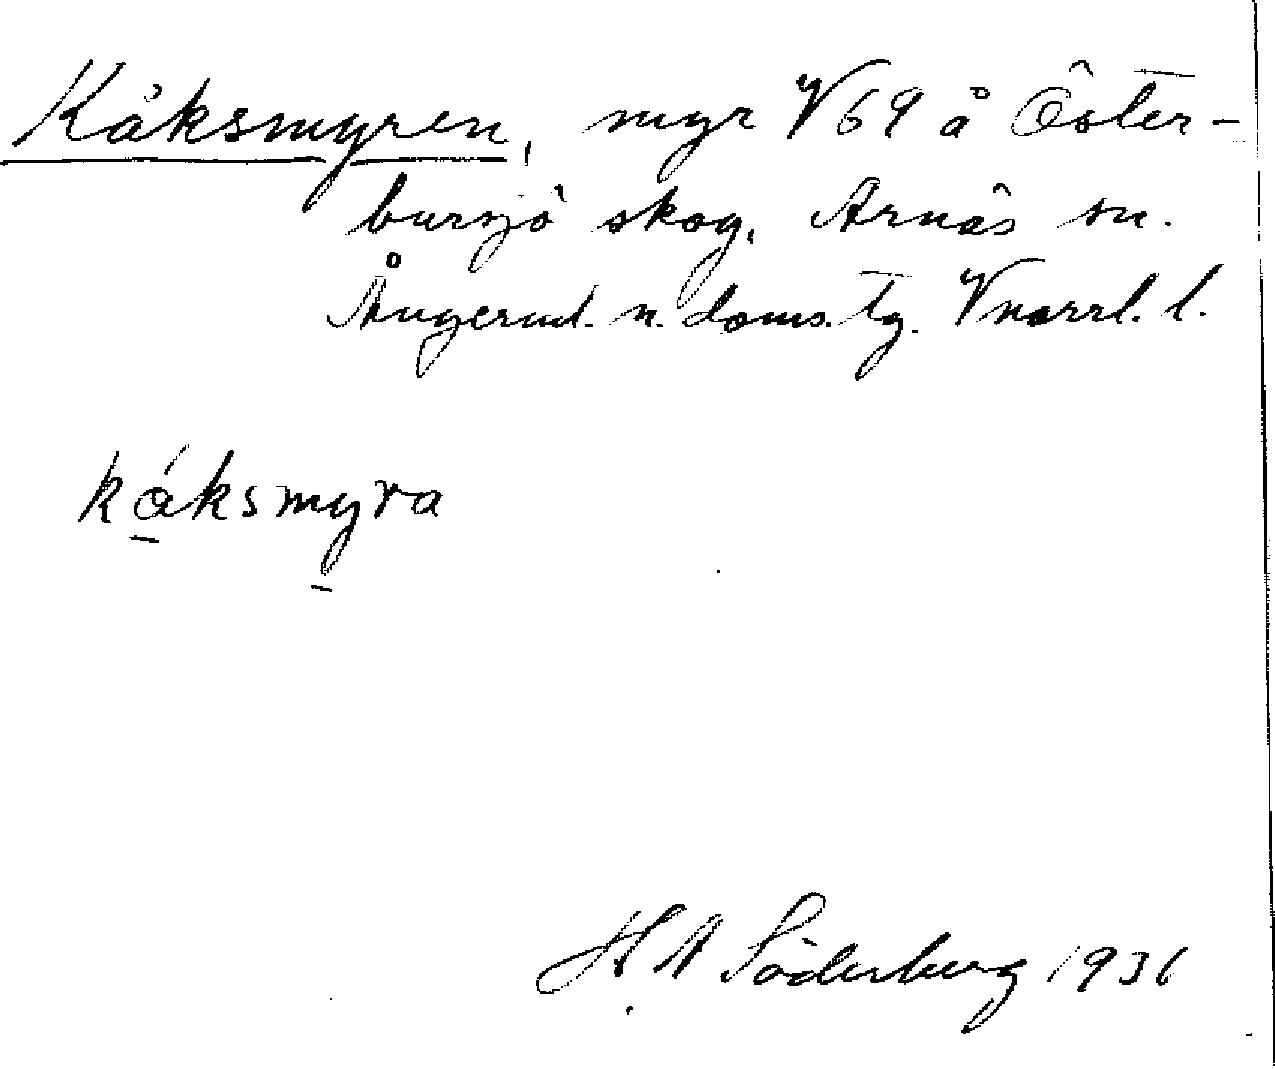 Kåksmyren, myr V69 å Öster-
bursjö skog, Arnäs sn.
Ångerml. n. doms. tg. Vnorrl. l.
kåksmyra
H A Söderberg 1931